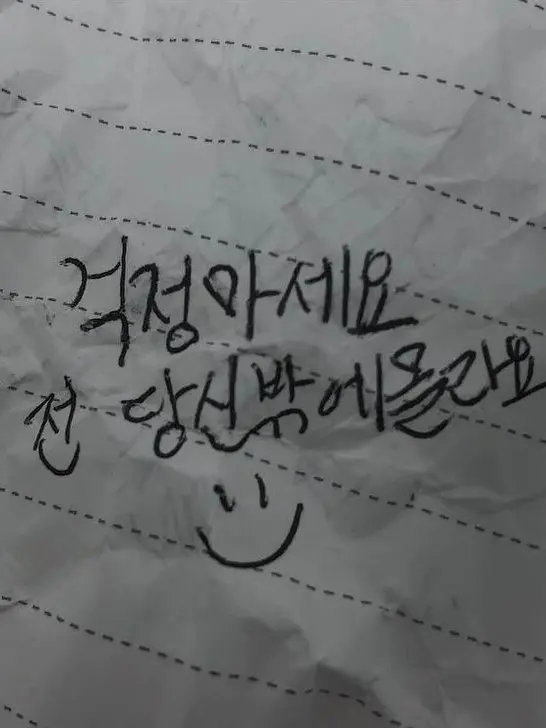 걱정마세요
전 당신밖에몰라요